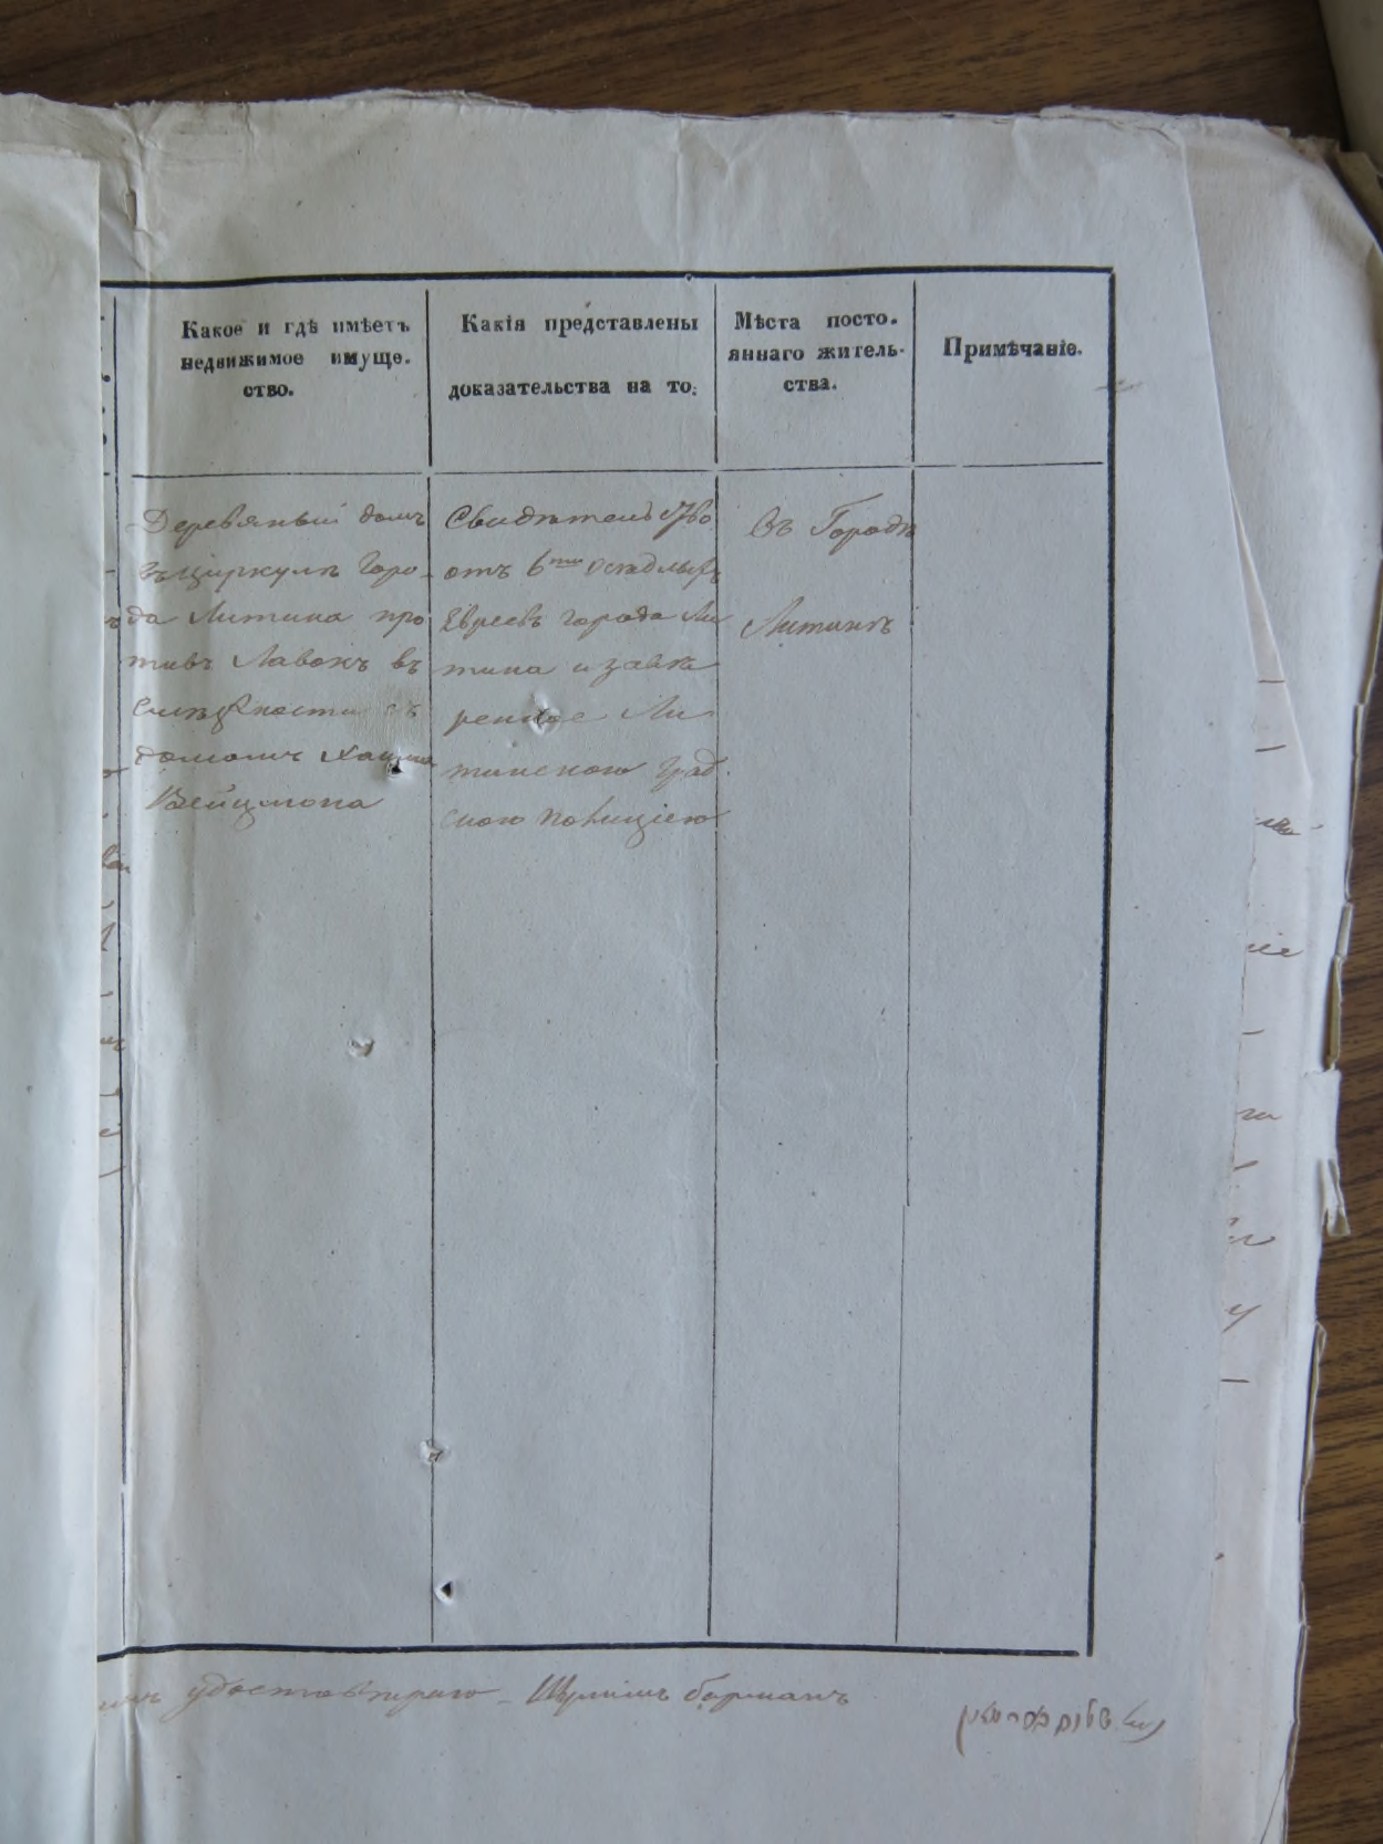 Какое и гдѣ имѣетъ
недвижимое имуще.
ство.
Какія представлены
доказательства на то.
Мѣста посто.
яннаго житель-
ства.
Примѣчаніе.
Деревяный домъ
въ циркулѣ Горо-
да Литина про
тивъ Лавокъ въ
смѣжности съ
домомъ Хаима
Вейцмона
Свидѣтельство
отъ 6ти осѣдлыхъ
Евреевъ города Ли
тина и завѣ
ренное Ли
тинскою Град.
скою Полиціею
Въ Городѣ
Литинѣ
удостовѣряю